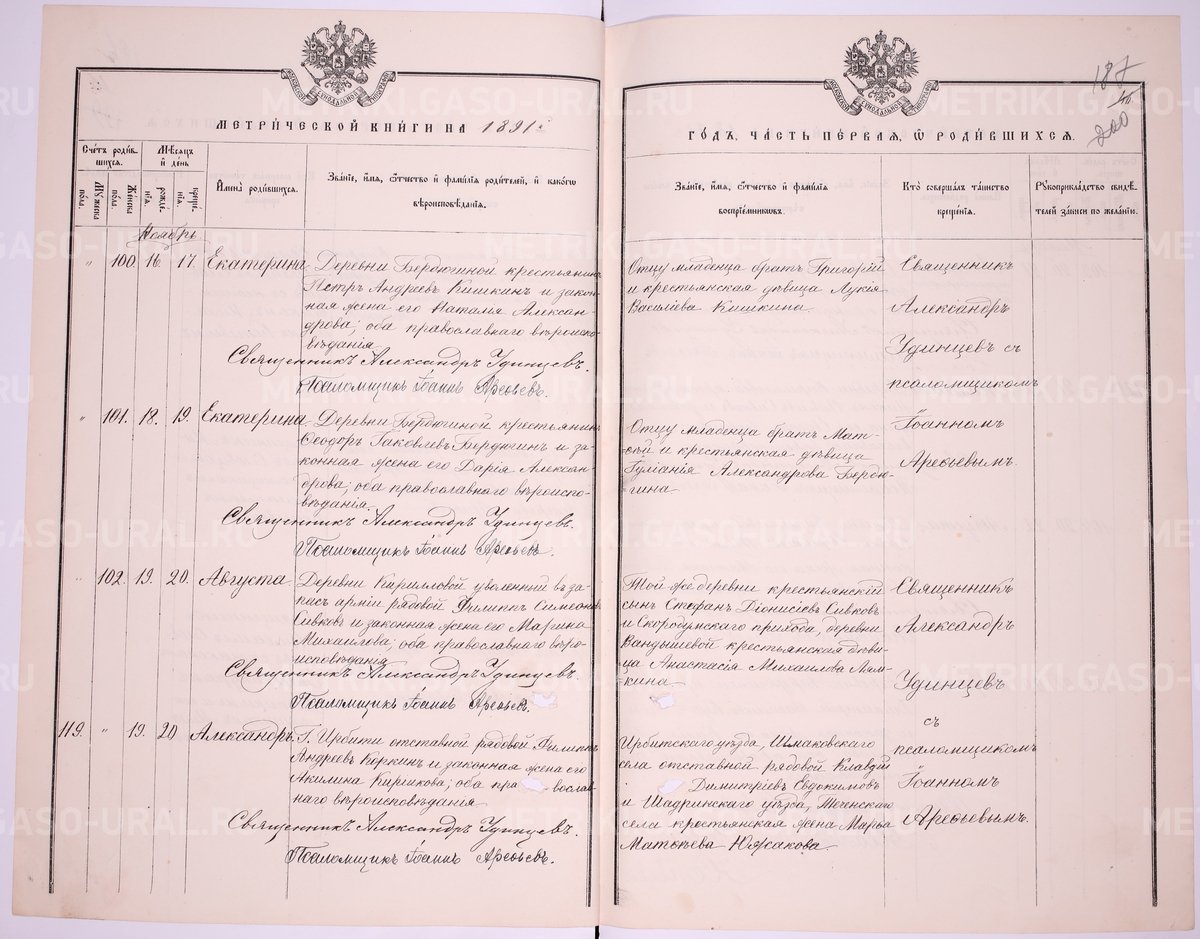 МЕТРИЧЕСКОЙ КНИГИ НА 1891й
Счетъ родившихся.
Мѣсяцъ и день
Имена родившихся.
Званіе, имя, отчество и фамилія родителей, и какого
вѣроисповѣданія.
Мужеска пола.
Женска пола.
рожденія.
крещенія.
Ноябрь
" 100. 16. 17. Екатерина
Деревни Бердюгиной крестьянинъ
Петръ Андреевъ Кишкинъ и закон-
ная жена его Наталія Алексан-
дрова; оба православнаго вѣроиспо-
вѣданія
Священникъ Александръ Удинцевъ.
Псаломщикъ Іоаннъ Арефьевъ.
" 101. 18. 19. Екатерина
Деревни Бердюгиной крестьянинъ
Ѳеодоръ Іаковлевъ Бердюгинъ и за-
конная жена его Дарія Алексан-
дрова; оба православнаго вѣроиспо-
вѣданія.
Священникъ Александръ Удинцевъ.
Псаломщикъ Іоаннъ Арефьевъ.
" 102. 19. 20. Августа
Деревни Кирилловой уволенный въ за-
пасъ арміи рядовой Филиппъ Симеоновъ
Сивковъ и законная жена его Марина
Михаилова; оба православнаго вѣро-
исповѣданія
Священникъ Александръ Удинцевъ.
Псаломщикъ Іоаннъ Арефьевъ.
119. " 19. 20 Александръ
Г. Ирбити отставной рядовой Филиппъ
Андреевъ Коркинъ и законная жена его
Акилина Кирикова; оба православ-
наго вѣроисповѣданія
Священникъ Александръ Удинцевъ.
Псаломщикъ Іоаннъ Арефьевъ.
187
200
ГОДЪ, ЧАСТЬ ПЕРВАЯ, Ѡ РОДИВШИХСЯ.
Званіе, имя, отчество и фамилія
воспріемниковъ.
Кто совершалъ таинство
крещенія.
Рукоприкладство свидѣ-
телей записи по желанію.
Отцу младенца братъ Григорій
и крестьянская дѣвица Лукія
Василіева Кишкина
Священникъ
Александръ
Удинцевъ съ
псаломщикомъ
Іоанномъ
Арефьевымъ.
Отцу младенца братъ Мат-
ѳей и крестьянская дѣвица
Іуліанія Александрова Бердю-
гина
Той же деревни крестьянскій
сынъ Стефанъ Діонисіевъ Сивковъ
и Скородумскаго прихода, деревни
Вандышевой крестьянская дѣви-
ца Анастасія Михаилова Лям-
кина
Священникъ
Александръ
Удинцевъ
съ
псаломщикомъ
Іоанномъ
Арефьевымъ.
Ирбитскаго уѣзда, Шмаковскаго
села отставной рядовой Клавдій
Димитріевъ Евдокимовъ
и Шадринскаго уѣзда, Теченскаго
села крестьянская жена Марѳа
Матѳеева Южакова